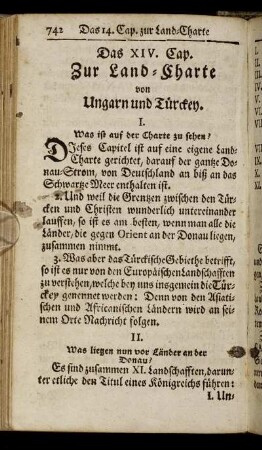 742 Das 14. Cap. zur Land-Charte
Das XIV. Cap.
Zur Land-Charte
von
Ungarn und Türckey.
I.
Was ist auf der Charte zu sehen?
DIeses Capitel ist auf eine eigene Land-
Charte gerichtet, darauf der gantze Do-
nau-Strom, von Deutschland an biß an das
Schwartze Meer enthalten ist.
2. Und weil die Grentzen zwischen den Tür-
cken und Christen wunderlich untereinander
lauffen, so ist es am besten, wenn man alle die
Länder, die gegen Orient an der Donau liegen,
zusammen nimmt.
3. Was aber das Türckische Gebiethe betrifft,
so ist es nur von den Europäischen Landschafften
zu verstehen, welche bey uns insgemein die Tür-
ckey genennet werden: Denn von den Asiati-
schen und Africanischen Ländern wird an sei-
nem Orte Nachricht folgen.
II.
Was liegen nun vor Länder an der
Donau?
Es sind zusammen XI. Landschafften, darun-
ter etliche den Titul eines Königreichs führen:
I. Un-